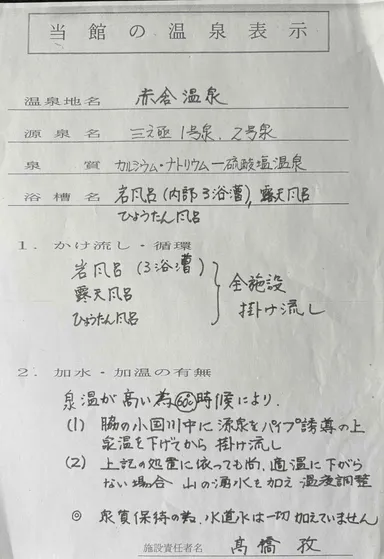 当館の温泉表示
温泉地名 赤倉温泉
源泉名 三之亟1号泉、2号泉
泉質 カルシウム・ナトリウム-硫酸塩温泉
浴槽名 岩風呂(内部3浴漕)、露天風呂
ひょうたん風呂
1.かけ流し・循環
岩風呂(3浴漕)
露天風呂
ひょうたん風呂
全施設
掛け流し
2.加水・加温の有無
泉温が高い為 60℃ 時候により、
(1) 脇の小国川中に源泉をパイプ誘導の上
泉温を下げてから掛け流し
(2) 上記の処置に依っても尚、適温に下がら
ない場合 山の湧水を加え 温度調整
◎ 泉質保持の為、水道水は一切加えていません
施設責任者名 高橋孜